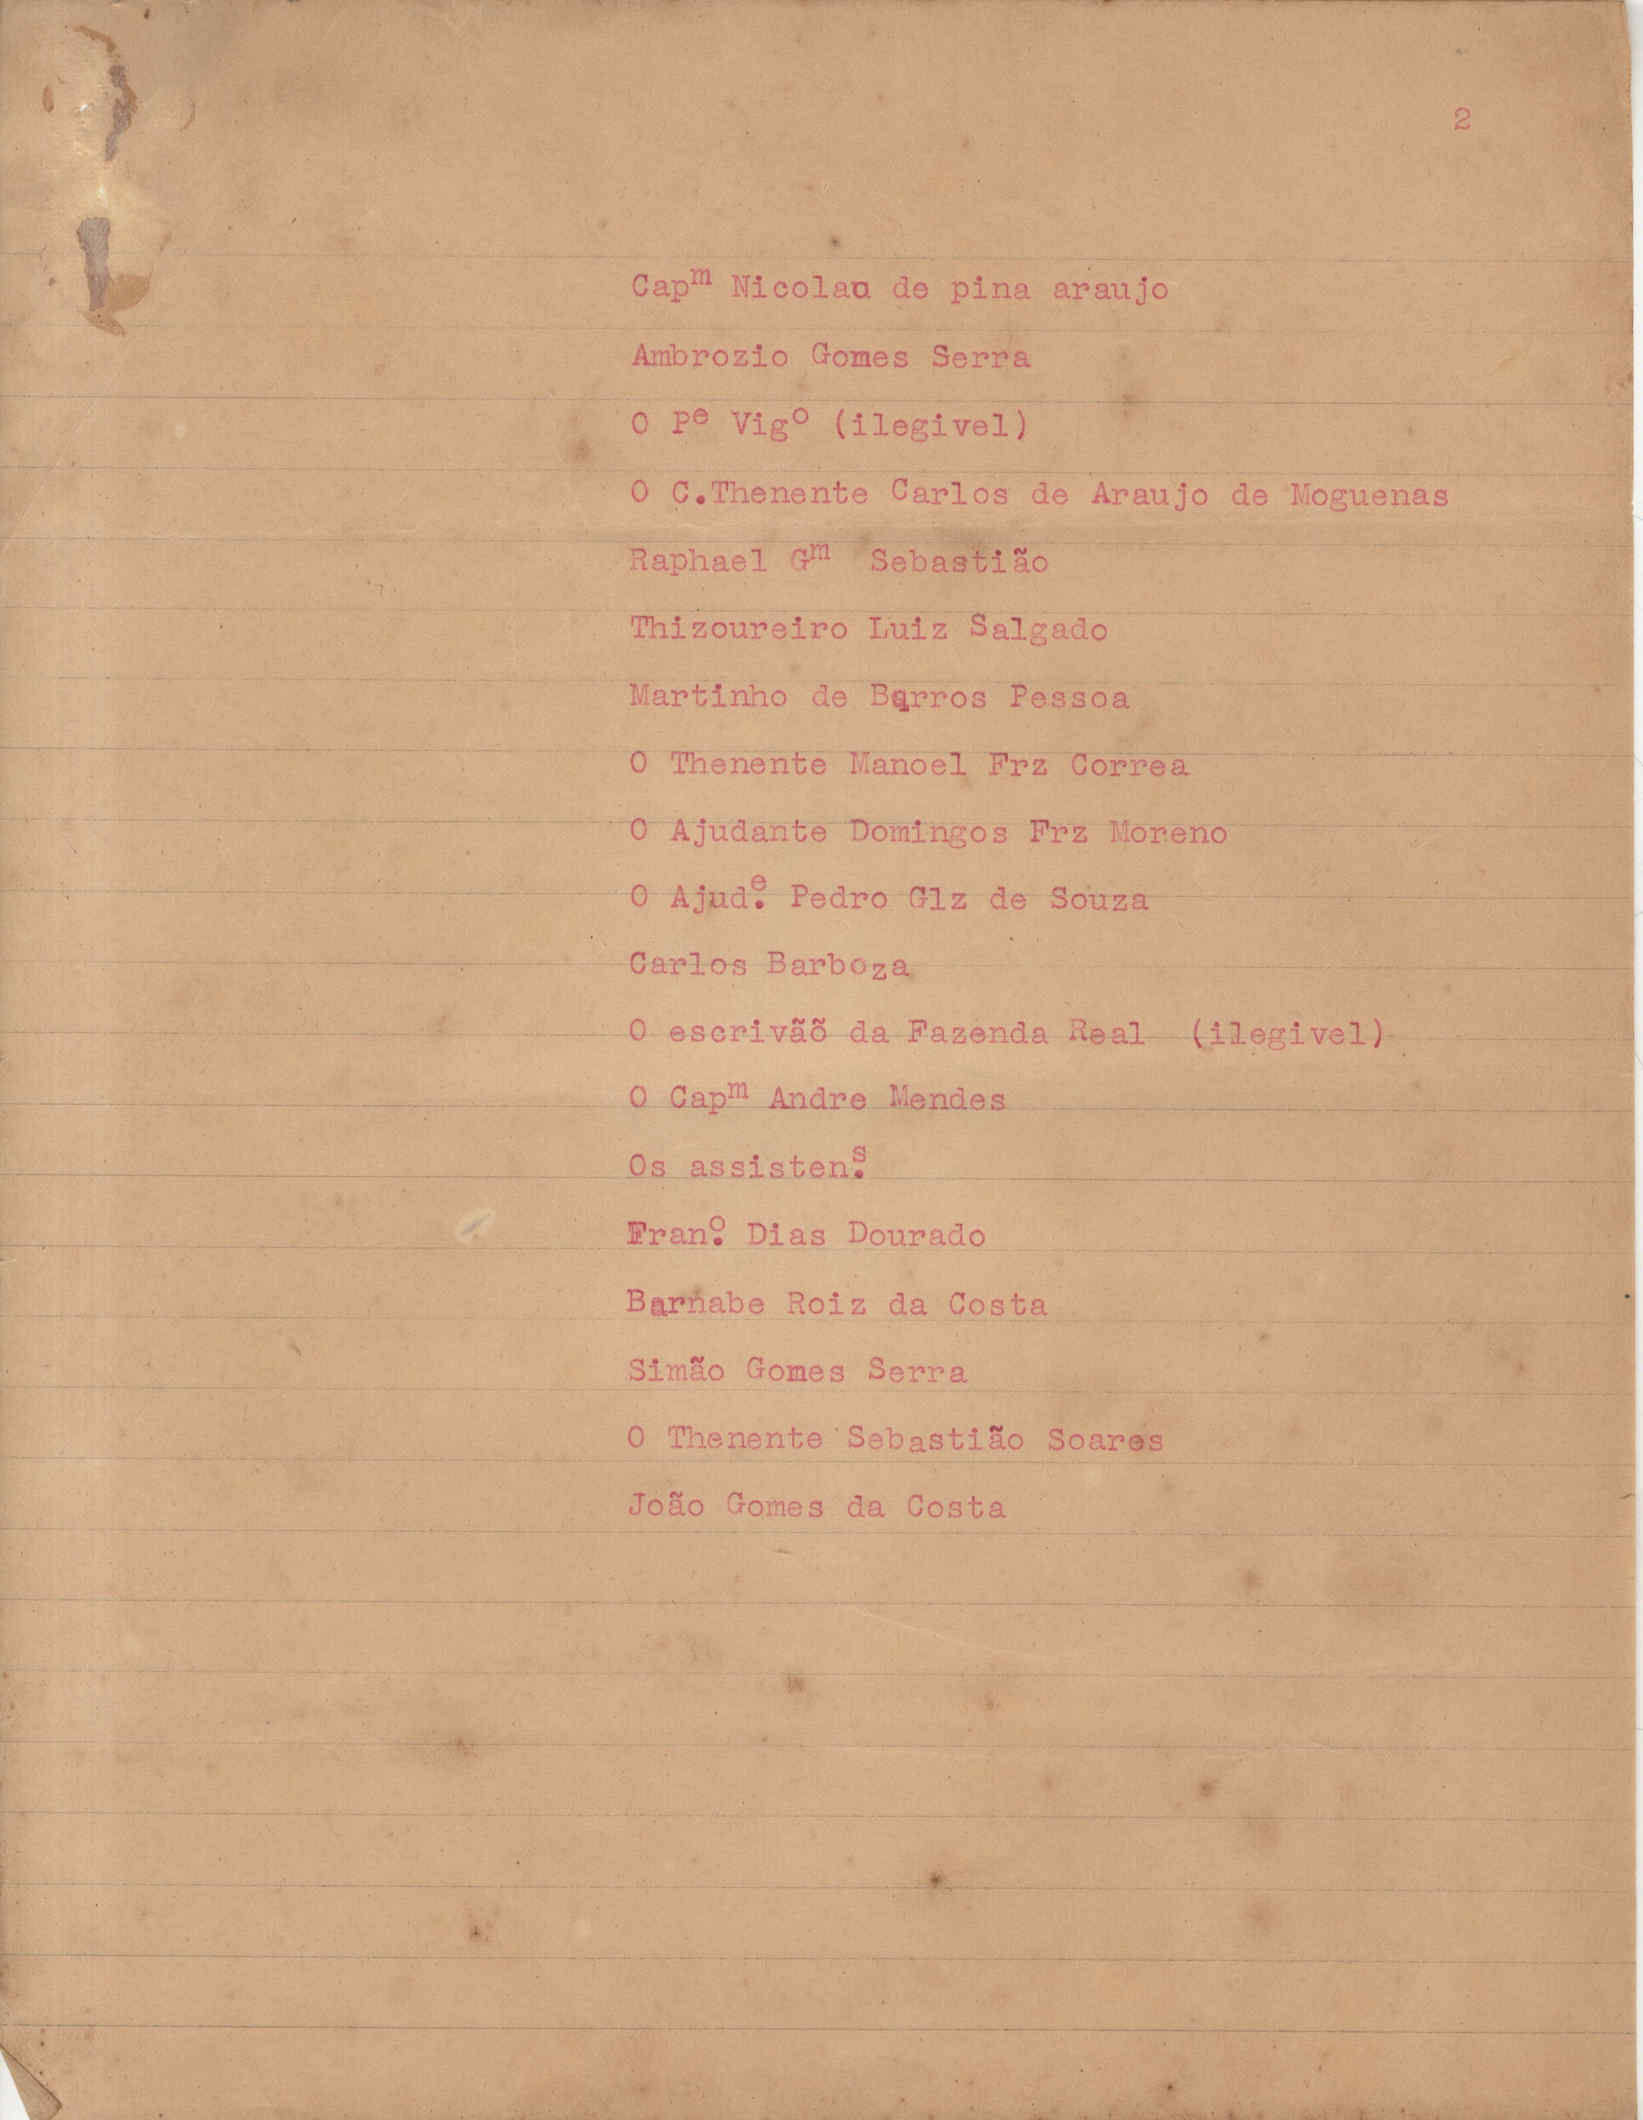 2
Capᵐ Nicolau de pina araujo
Ambrozio Gomes Serra
O Pᵉ Vigᵒ (ilegivel)
O C.Thenente Carlos de Araujo de Moguenas
Raphael Gᵐ Sebastião
Thizoureiro Luiz Salgado
Martinho de Barros Pessoa
O Thenente Manoel Frz Correa
O Ajudante Domingos Frz Moreno
O Ajud.ᵉ Pedro Glz de Souza
Carlos Barboza
O escrivãõ da Fazenda Real (ilegivel)
O Capᵐ Andre Mendes
Os assisten.ˢ
Fran.ᵒ Dias Dourado
Barnabe Roiz da Costa
Simão Gomes Serra
O Thenente Sebastião Soares
João Gomes da Costa